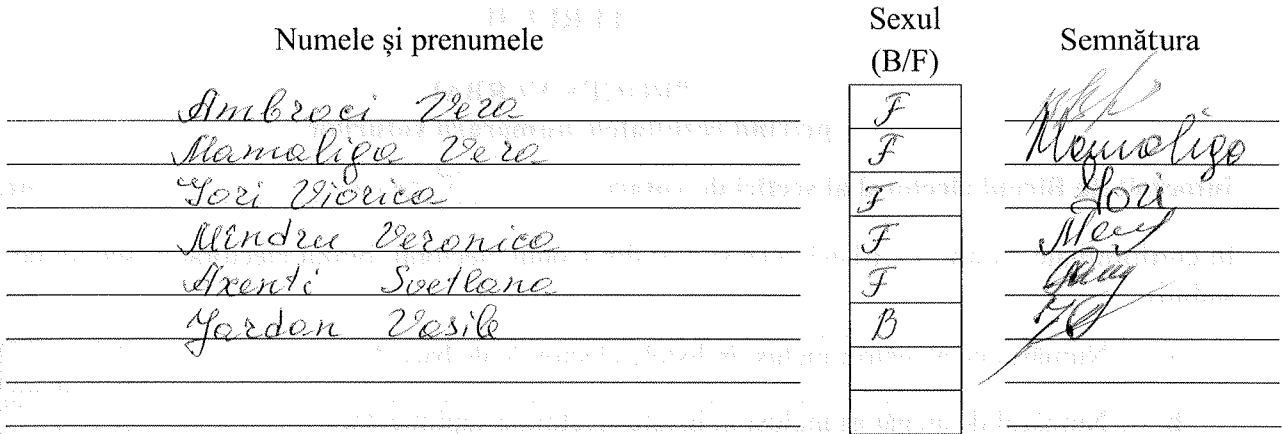 Numele și prenumele Sexul (B/F) Semnătura
Ambroci Vera F
Mamaliga Vera F Mamaliga
Iori Viorica F Iori
Mindru Veronica F
Axenti Svetlana F
Iardan Vasile B